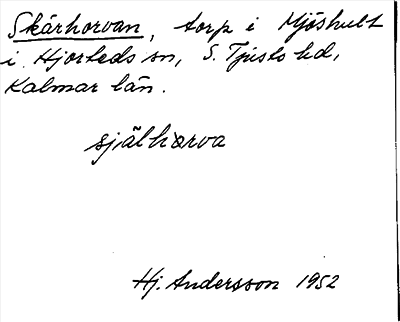 Skärhorvan, torp i Mjöshult
i Hjorteds sn, S. Tjusts hd,
Kalmar län.
själhorva
Hj. Andersson 1952